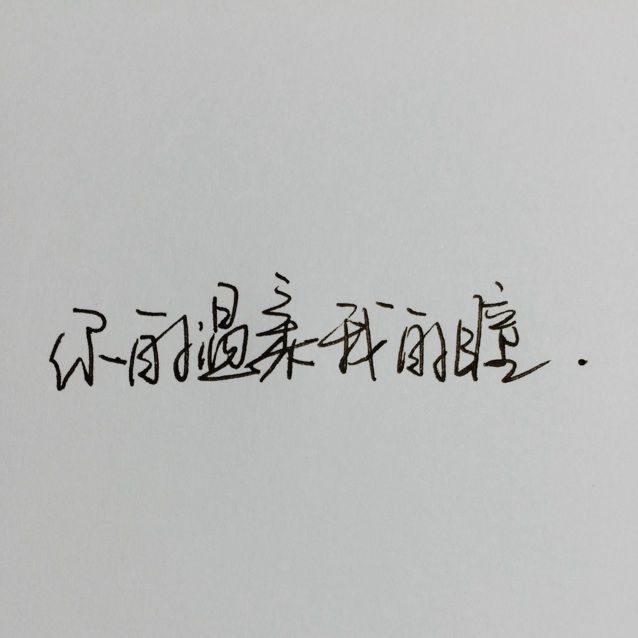 你的温柔我的瞳.